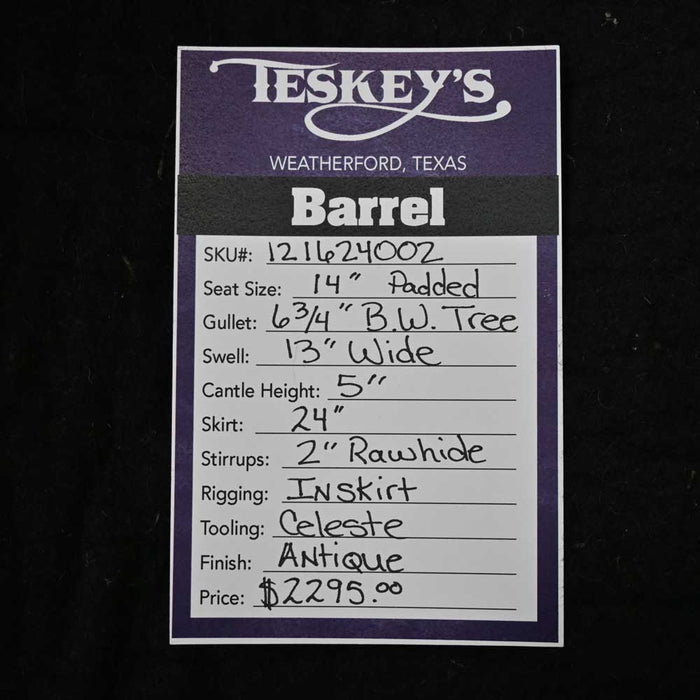 TESKEY'S
WEATHERFORD, TEXAS
Barrel
SKU#: 121624002
Seat Size: 14" Padded
Gullet: 6 3/4" B.W. Tree
Swell: 13" Wide
Cantle Height: 5"
Skirt: 24"
Stirrups: 2" Rawhide
Rigging: INSkirt
Tooling: Celeste
Finish: ANtiQue
Price: $2295.00